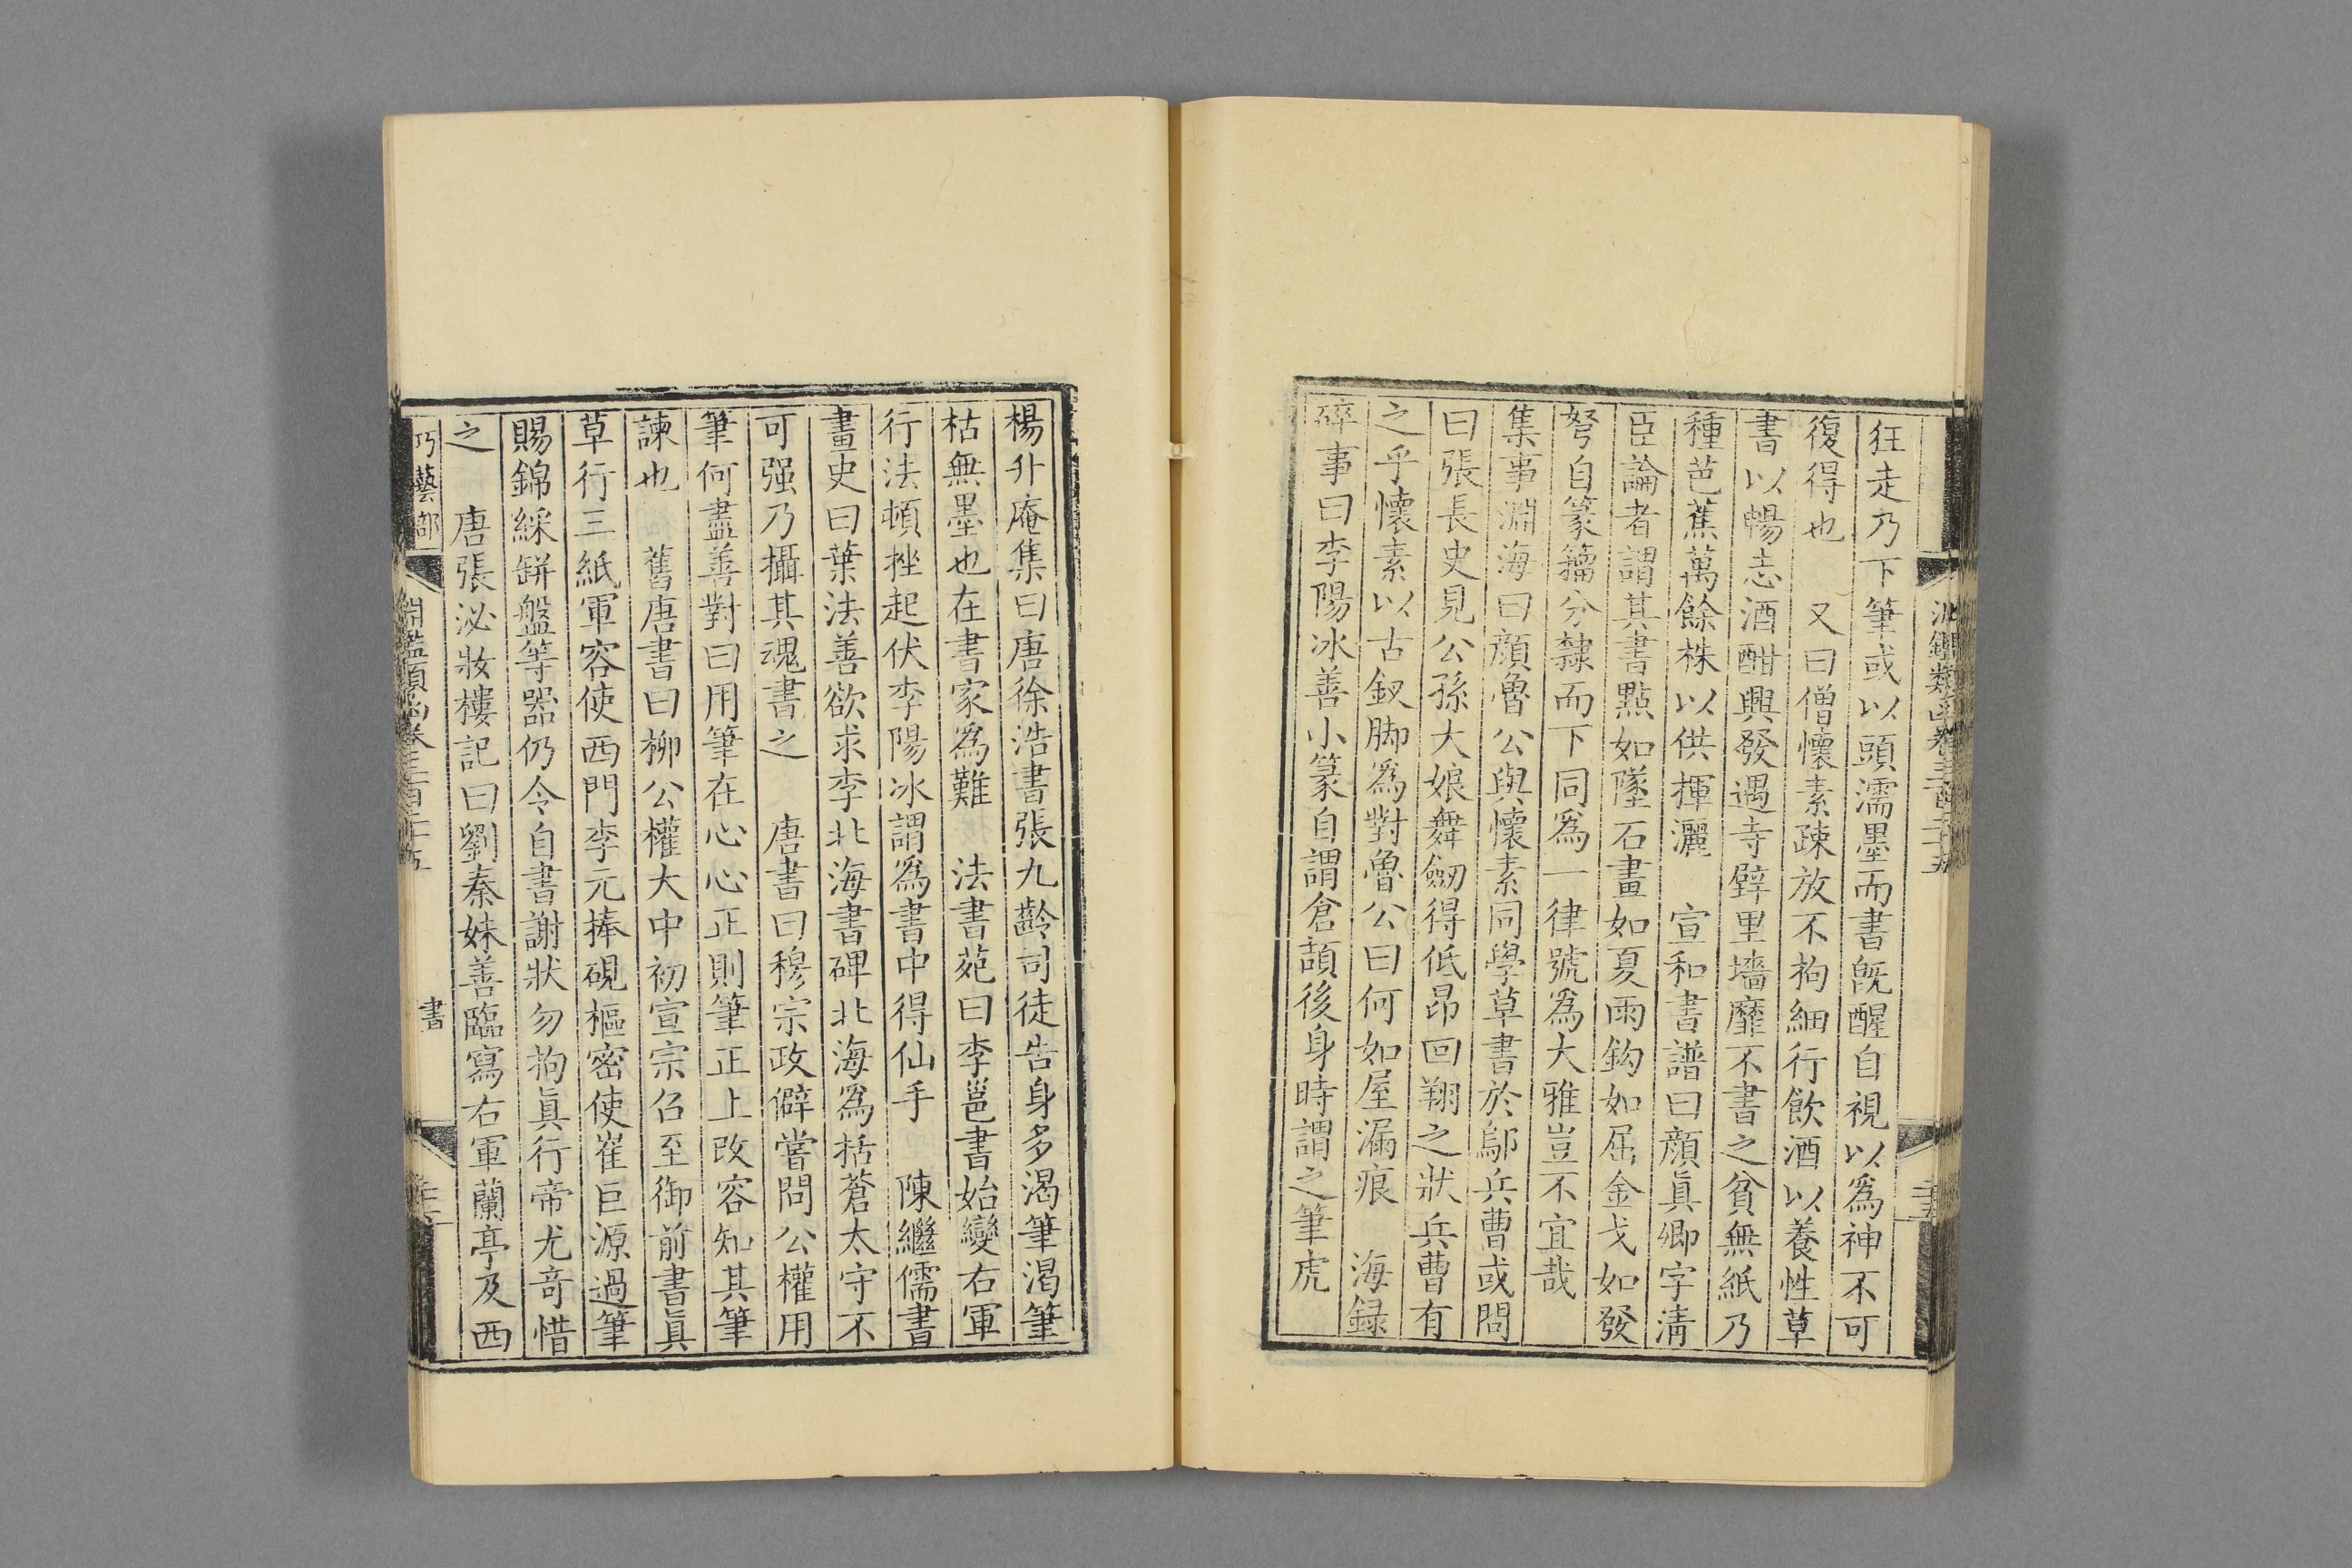 狂走乃下筆或以頭濡墨而書旣醒自視以爲神不可
復得也　又曰僧懷素疎放不拘細行飲酒以養性草
書以暢志酒酣興發遇寺壁里墻靡不書之貧無紙乃
種芭蕉萬餘株以供揮灑　宣和書譜曰顔眞卿字淸
臣論者謂其書點如墜石畫如夏雨鈎如屈金戈如發
弩自篆籀分隸而下同爲一律號爲大雅豈不宜哉
集事淵海曰顔魯公與懷素同學草書於鄔兵曹或問
曰張長史見公孫大娘舞劒得低昂回翔之狀兵曹有
之乎懷素以古釵脚爲對魯公曰何如屋漏痕　海録
碎事曰李陽冰善小篆自謂倉頡後身時謂之筆虎
楊升庵集曰唐徐浩書張九齡司徒告身多渴筆渴筆
枯無墨也在書家爲難　法書苑曰李邕書始變右軍
行法頓挫起伏李陽冰謂爲書中得仙手　陳繼儒書
畫史曰葉法善欲求李北海書碑北海爲括蒼太守不
可强乃攝其魂書之　唐書曰穆宗政僻嘗問公權用
筆何盡善對曰用筆在心心正則筆正上改容知其筆
諫也　舊唐書曰柳公權大中初宣宗召至御前書眞
草行三紙軍容使西門李元捧硯樞密使崔巨源過筆
賜錦綵缾盤等器仍令自書謝狀勿拘眞行帝尤竒惜
之　唐張泌妝樓記曰劉秦妹善臨寫右軍蘭亭及西
巧藝部
淵鑑類函卷三百二十五
書